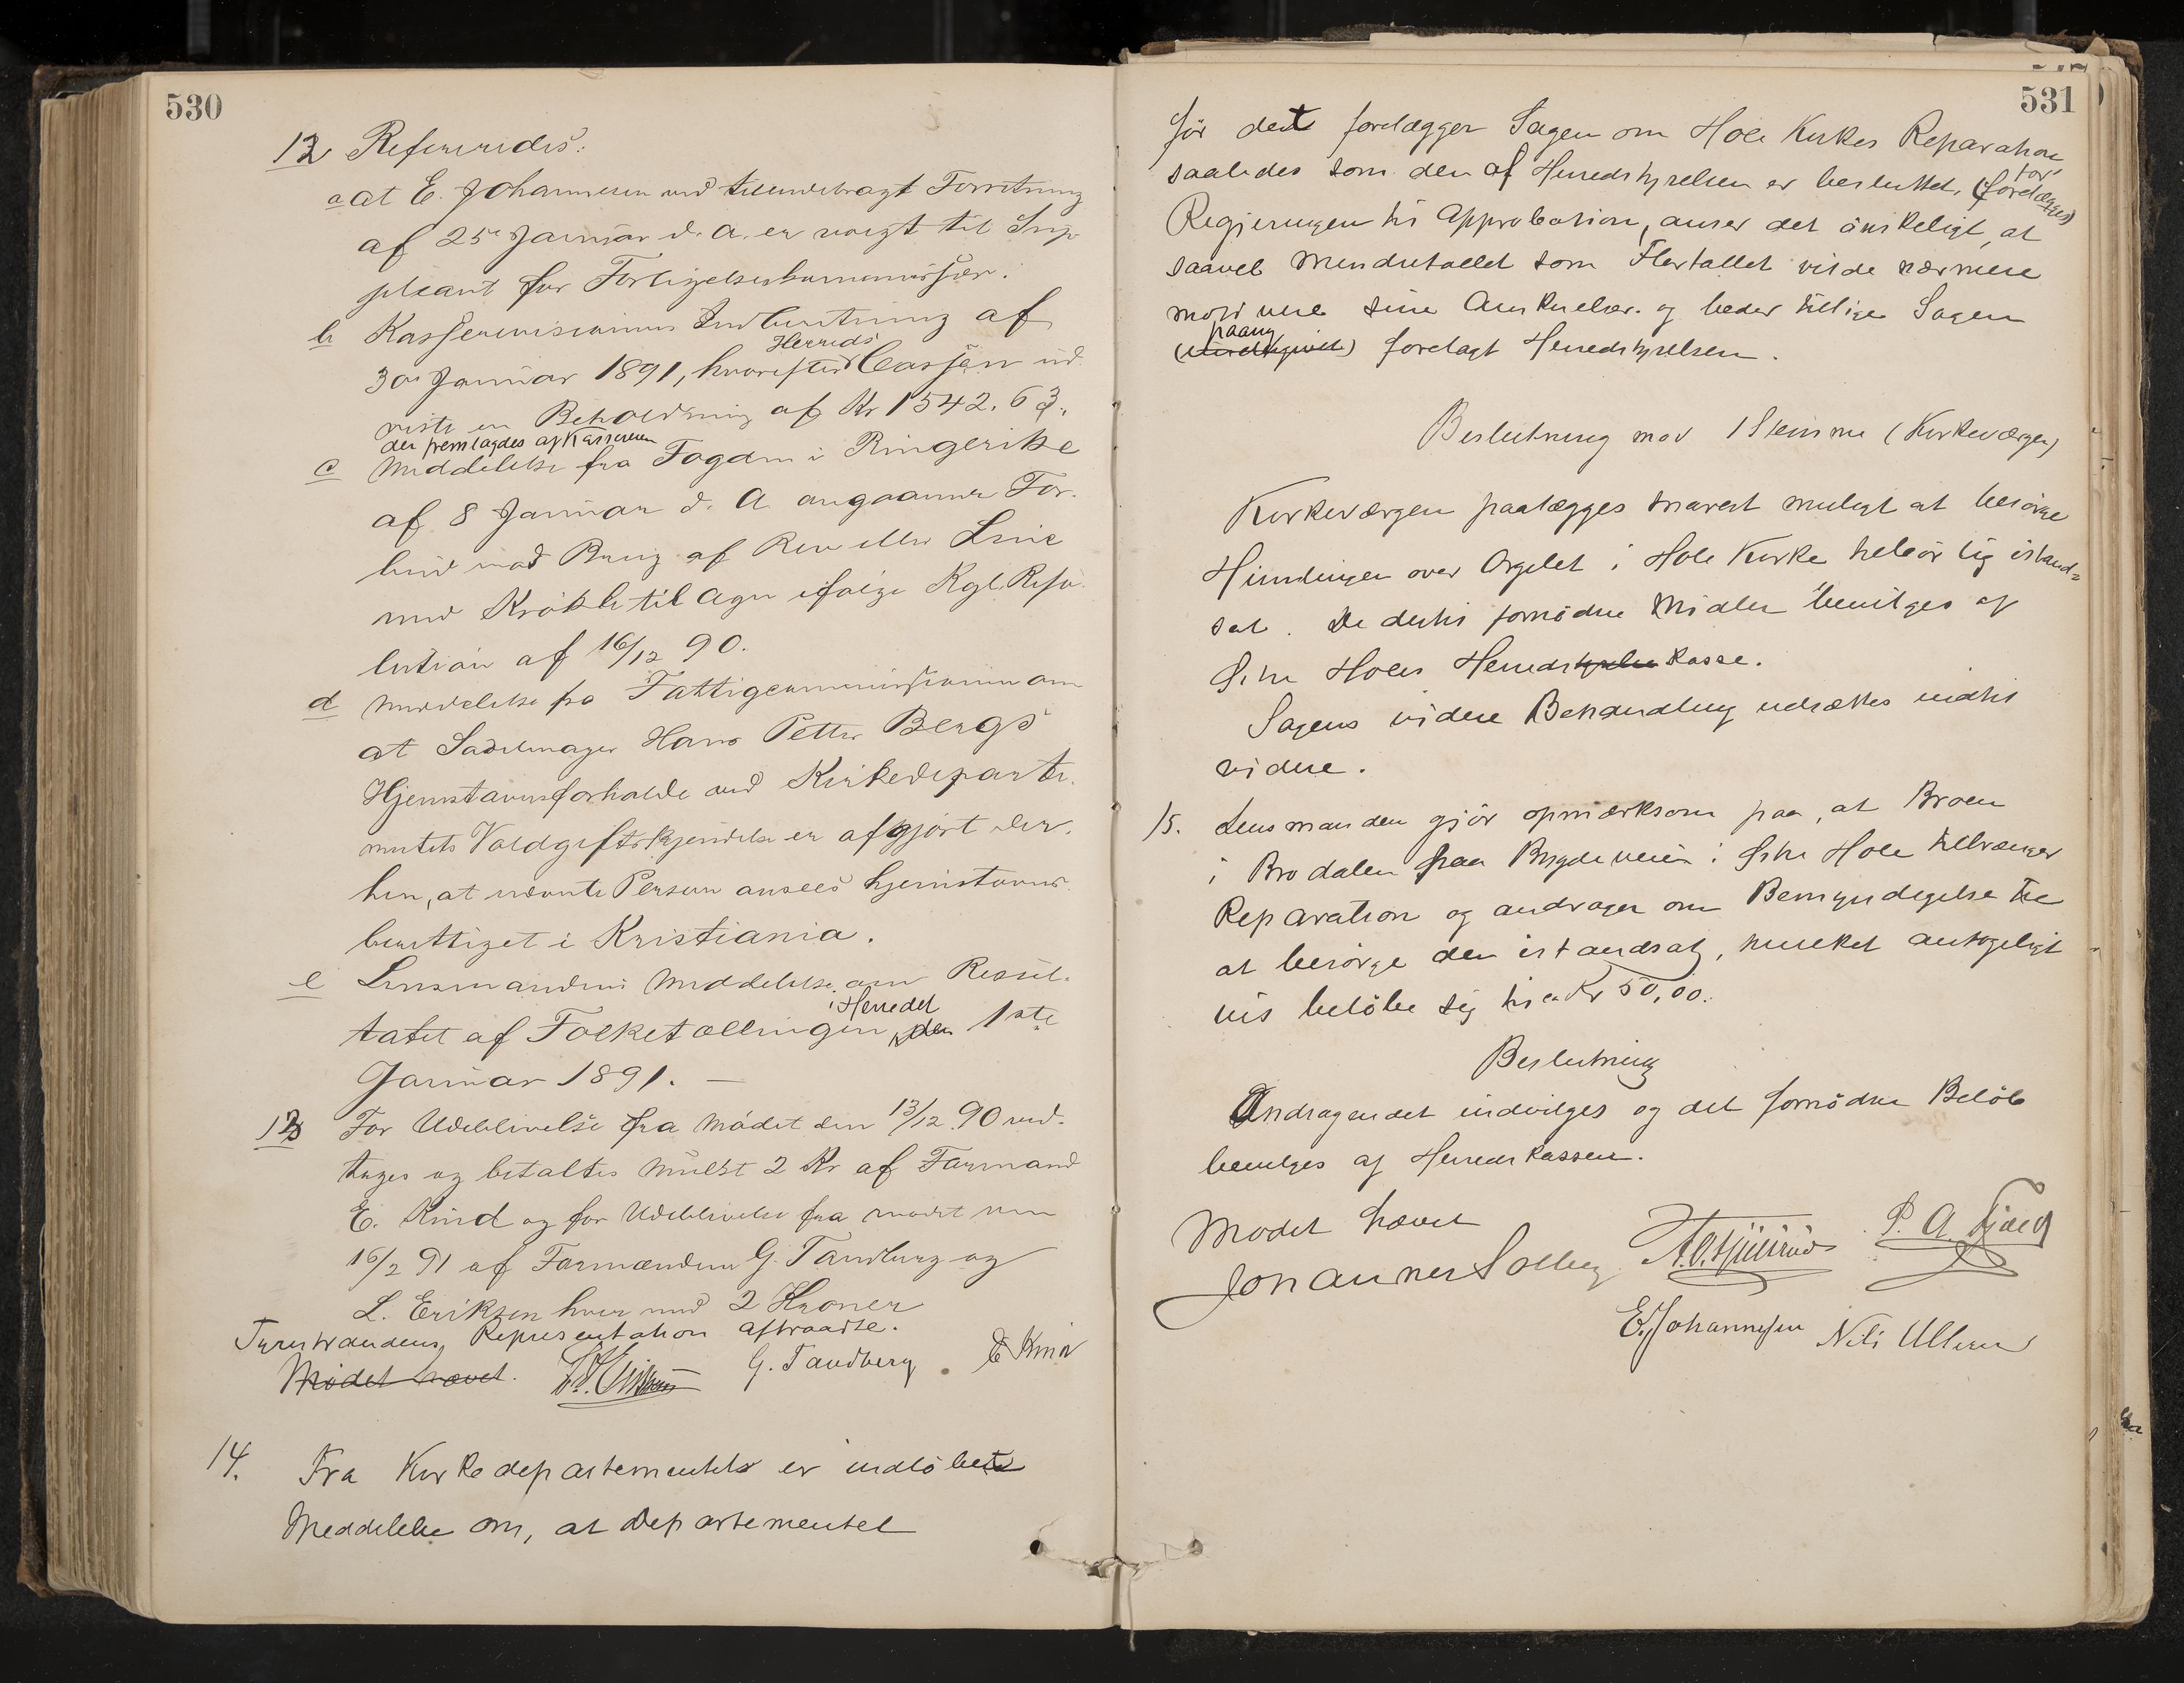 530
12 Refereredes:
a at E. Johannesen ved tilendebragt Forretning
af 25de Januar d. A. er valgt til Sup-
pleant for Forligelseskommissær.
b Kasserevisionens Indberetning af
30te Januar 1891, hvorefter Herreds Cassen ud-
viste en Beholdning af Kr 1542.63.
der fremlagdes af Kassereren
c Meddelelse fra Fogden i Ringerike
af 8 Januar d. A angaaende For-
bud mod Brug af Ren eller Line
med Krökle til Agn ifølge Kgl. Reso-
lution af 16/12 90.
d Meddelelse fra Fattigcommissionen om
at Sadelmager Hans Petter Bergs
Hjemstavnsforholde ved Kirkedeparte-
mentets Voldgiftskjendelse er afgjort der-
hen, at nævnte Person ansees hjemstavns-
berettiget i Kristiania.
e Lensmandens Meddelelse om Resul-
tatet af Folketællingen i Herredet den 1ste
Januar 1891. —
13 For Udeblivelse fra Mödet den 13/12 90 ved-
toges og betaltes Mulkt 2 Kr af Formand
E. Kind og for Udeblivelse fra mødet den
16/2 91 af Formændene G. Tandberg og
L. Eriksen hver med 2 Kroner
Fyrstrandens Representation aftraadte.
Mödet hævet. G. Tandberg. E Kind
14. Fra Kirkedepartementet er indlöbet
Meddelelse om, at Departementet
531
för det forelægger Sagen om Hole Kirkes Reparation
saaledes som den af Herredstyrelsen er besluttet, (forelægges) for
Regjeringen til Approbation, anser det önskeligt, at
saavel Mindretallet som Flertallet vilde nærmere
motivere sine Anskuelser og beder tillige Sagen
paany forelagt Herredstyrelsen.
Beslutning mod 1 Stemme (Kirkeværgen)
Kirkeværgen paalægges snarest muligt at besörge
Himlingen over Orgelet i Hole Kirke tilbörlig istand-
sat. De dertil fornödne Midler bevilges af
Hole Herredstyrelse Kasse.
Sagens videre Behandling udsættes indtil
videre.
15. Lensmanden gjör opmærksom paa, at Broen
i Brodalen paa Bygdeveien i Hole tiltrænger
Reparation og andrager om Bemyndigelse til
at besörge den istandsat, hvilket antageligt
vis belöbe sig til ca Kr 50,00.
Beslutning
Andragendet indvilges og det fornödne Belöb
bevilges af Herredskassen.
Mödet hævet
Johannes Solberg P. A. Fjeld
E. Johannesen Nils Ullern